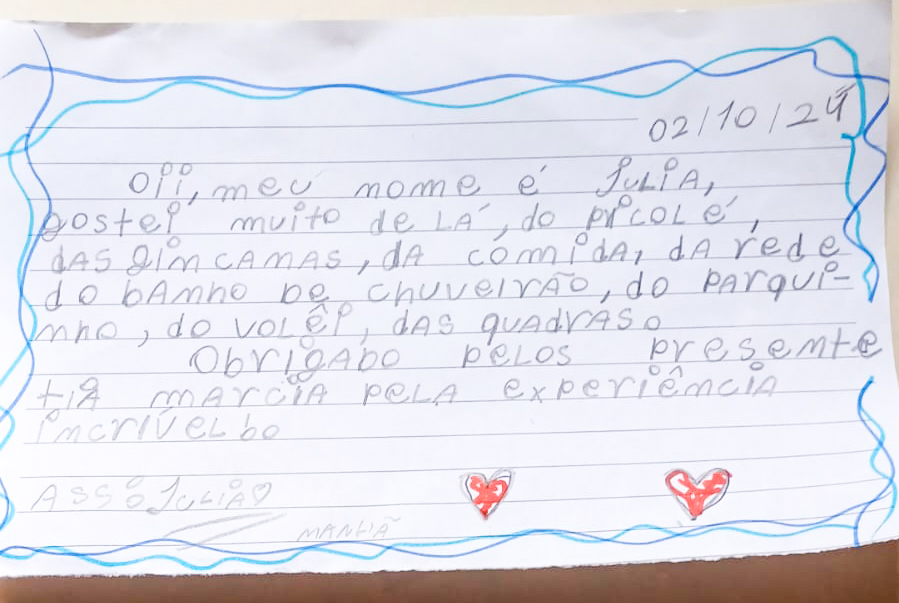 02/10/24
Oii, meu nome é Julia,
gostei muito de LÁ, do picoLé,
dAS gimcAMAS, dA comidA, dA rede
do bAmho de chuveirÃo, do pArqui-
mho, do volêi, dAS quAdrAS.
ObrigAdo peLos presemte
tiA mArciA peLA experiêmciA
imcrÍveL bo
ASS: JuLiA♡
MANHÃ